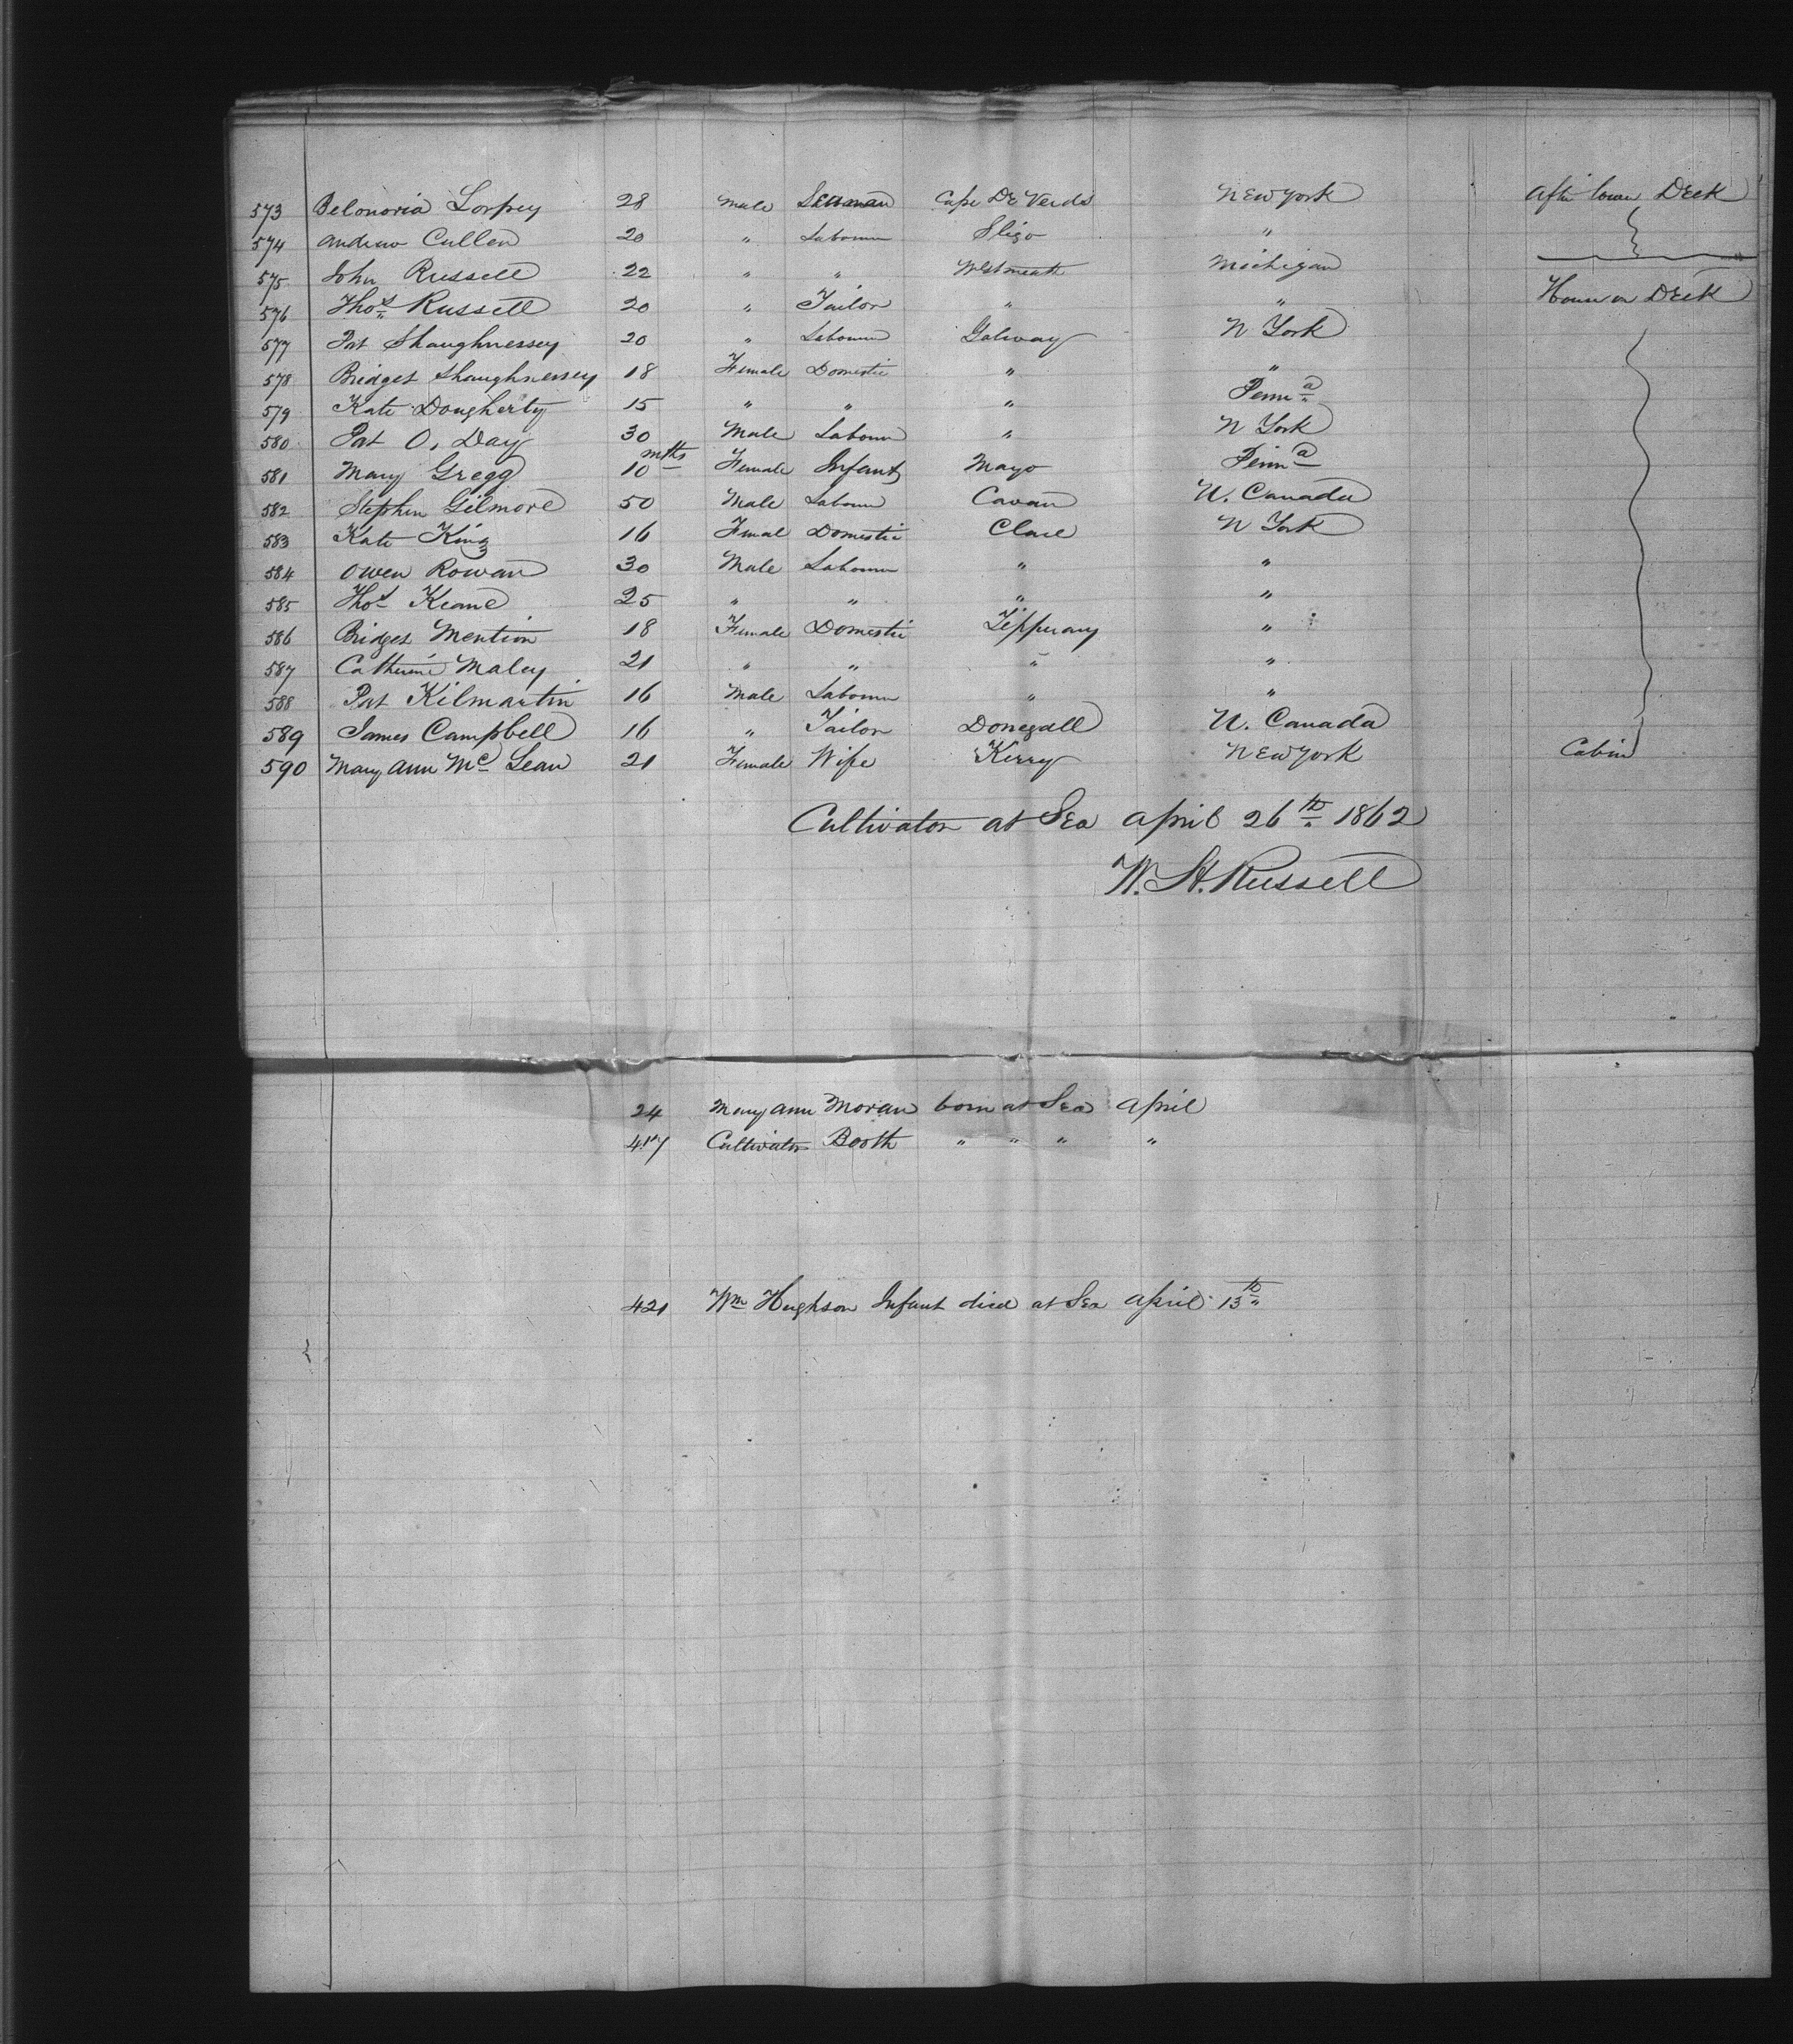 573 Belonoria Lorpey 28 Male Seaman Cape De Verds New York Aftr lower Deck
574 Andrew Cullen 20 " Labourer Sligo "
575 John Russell 22 " " Westmeath Michigan
576 Thos Russell 20 " Tailor " " House on Deck
577 Pat Shaughnessey 20 " Labourer Galway N York
578 Bridget Shaughnessey 18 Female Domestic " "
579 Kate Dougherty 15 " " " Penna
580 Pat O, Day 30 Male Labourer " N York
581 Mary Gregg 10 mths Female Infant Mayo Penna
582 Stephen Gilmore 50 Male Labourer Cavan U. Canada
583 Kate King 16 Femal Domestic Clare N York
584 Owen Rowan 30 Male Labourer " "
585 Thos Keane 25 " " " "
586 Bridget Mention 18 Female Domestic Tipperary "
587 Catherine Maley 21 " " " "
588 Pat Kilmartin 16 Male Labourer " "
589 James Campbell 16 " Tailor Donegall U. Canada
590 Mary Ann Mc Lean 21 Female Wife Kerry New York Cabin
Cultivator at Sea April 26th 1862
W. H. Russell
24 Mary Ann Moran born at Sea April
417 Cultivator Booth " " " "
421 Wm Hughson Infant died at Sea April 13th